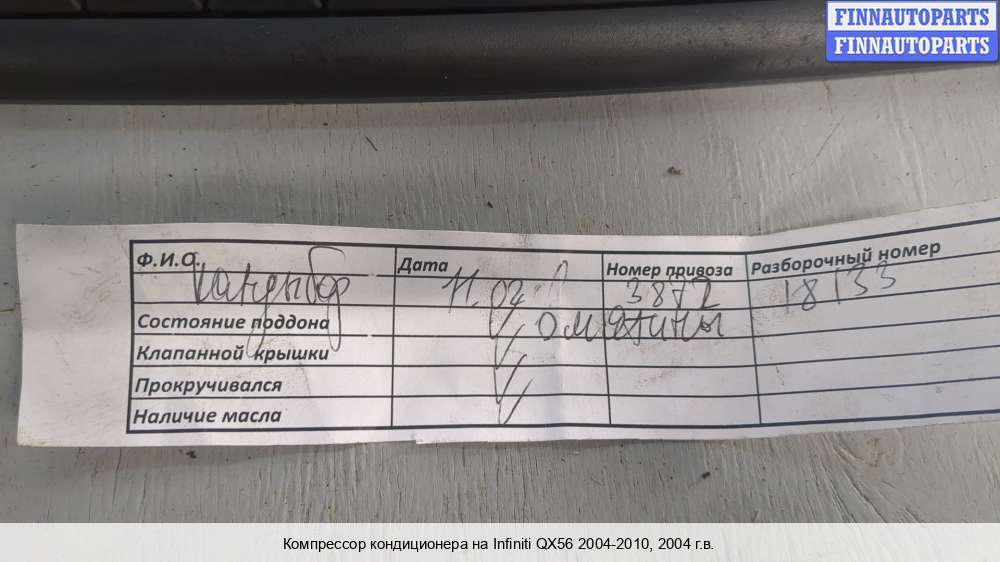 FINNAUTOPARTS
FINNAUTOPARTS
Ф.И.О. Дата Номер привоза Разборочный номер
11.04 3872 18133
Состояние поддона
Клапанной крышки
Прокручивался
Наличие масла
Компрессор кондиционера на Infiniti QX56 2004-2010, 2004 г.в.